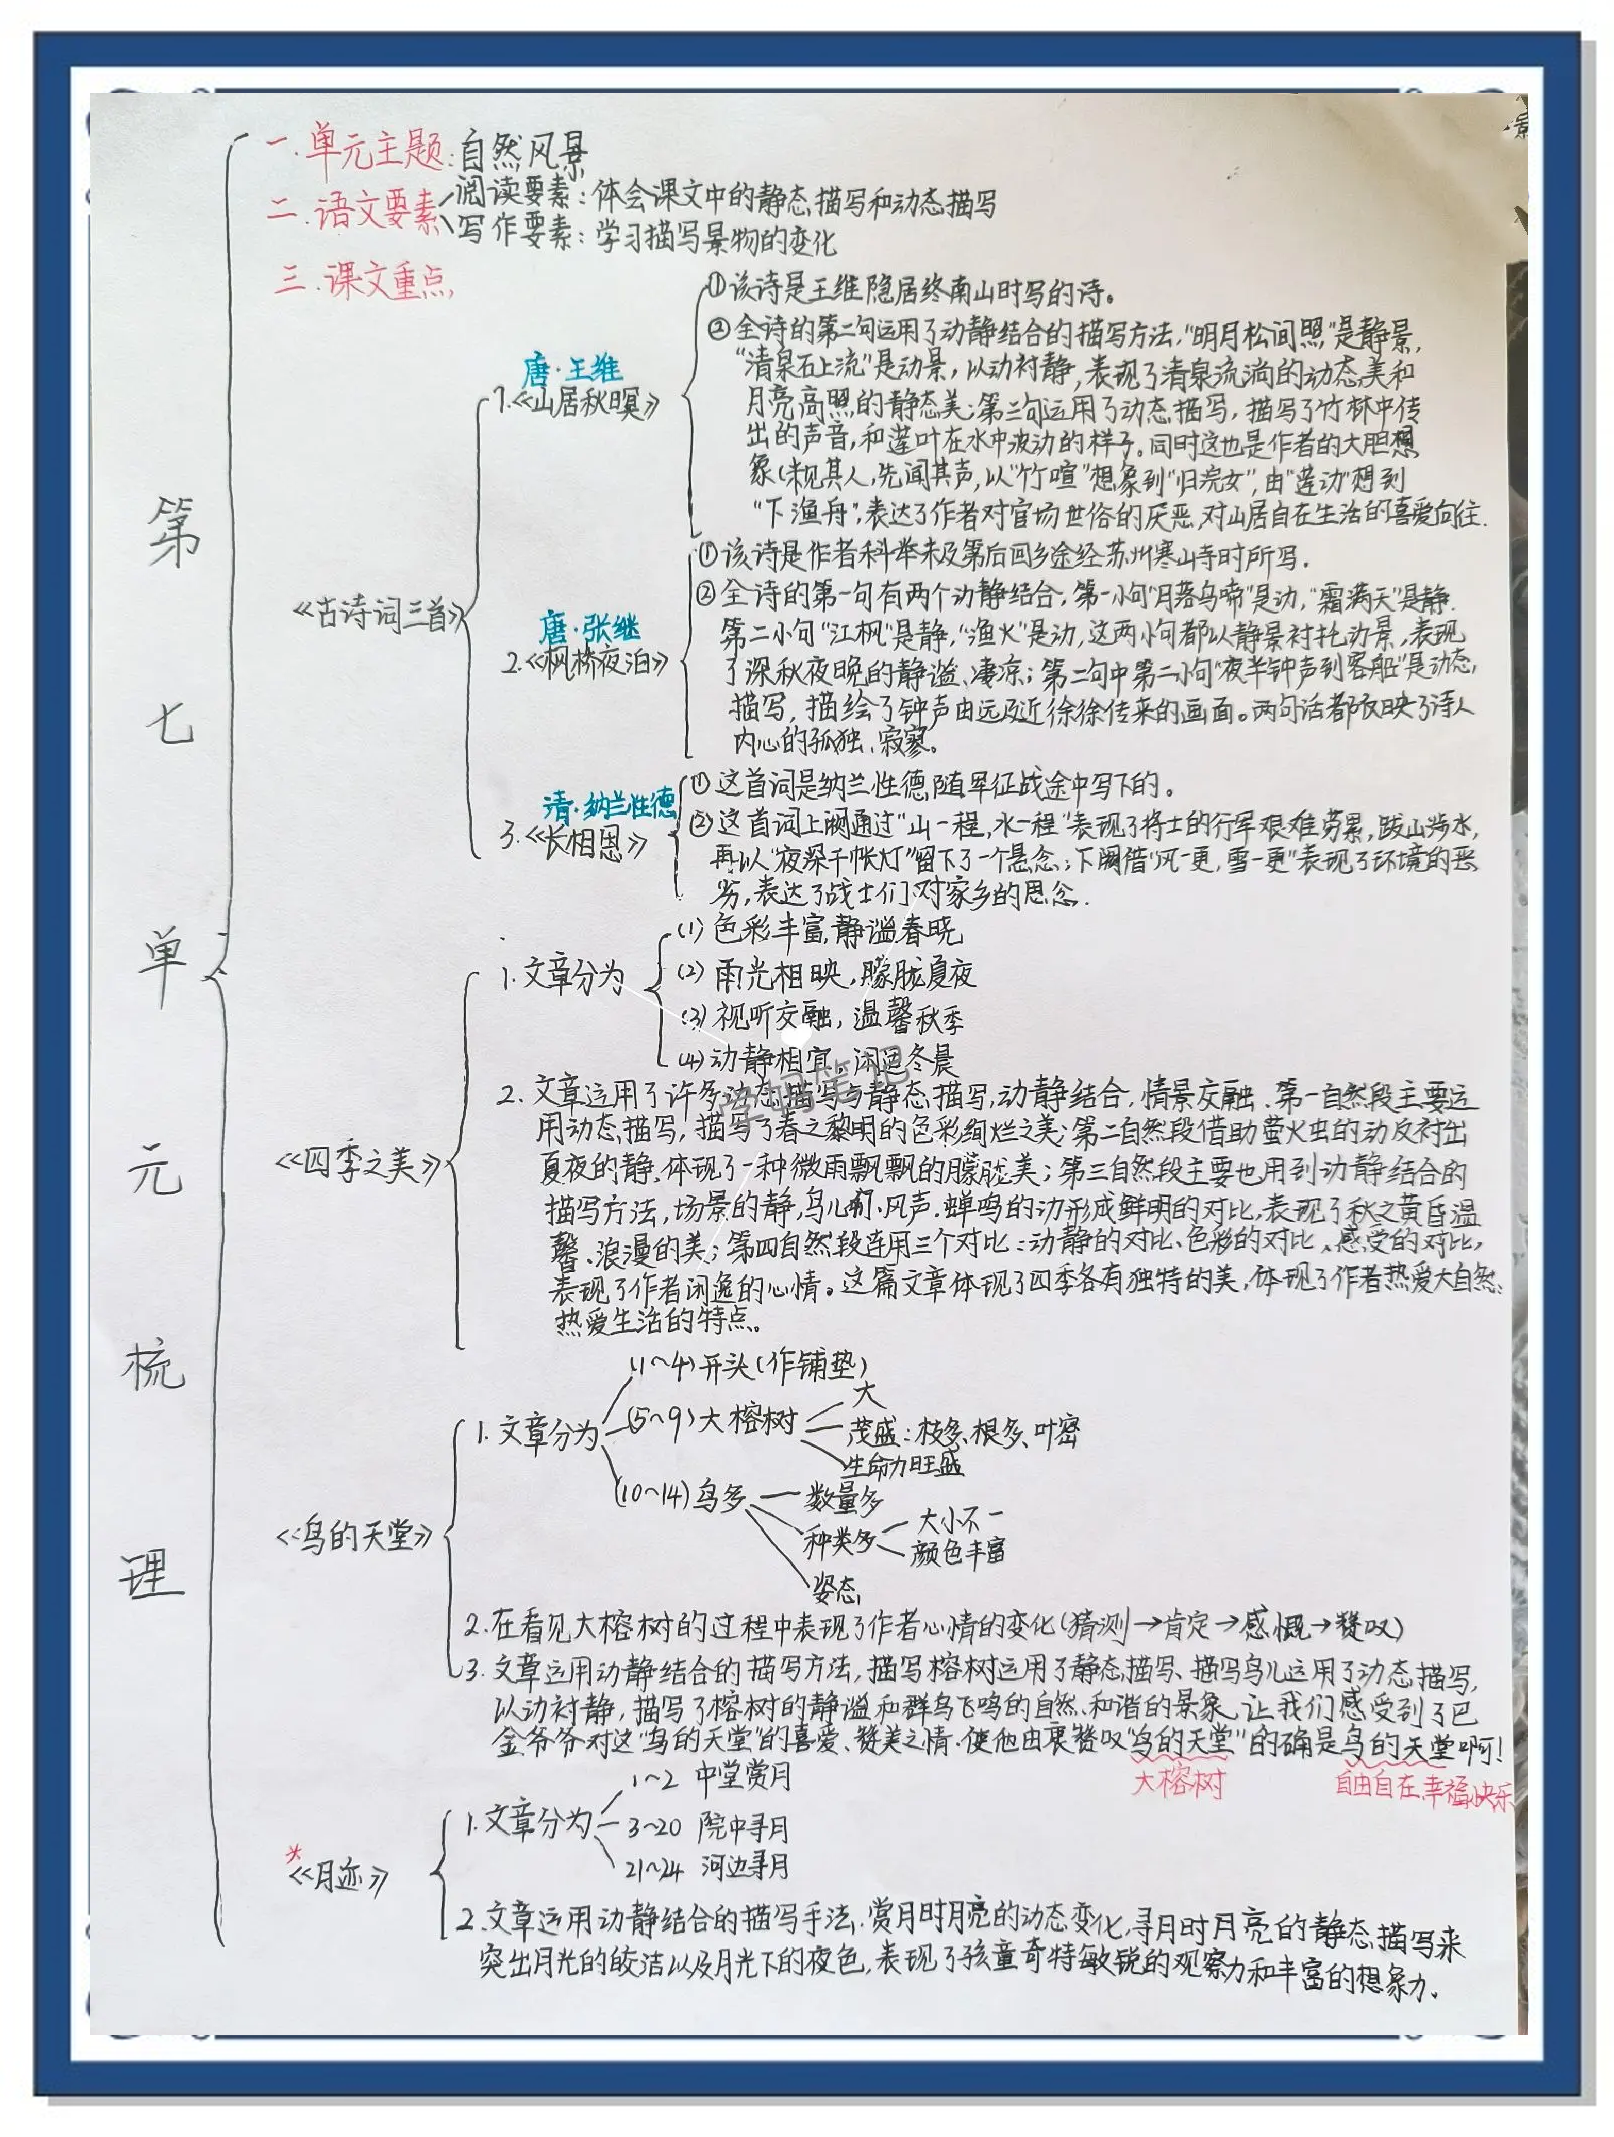 第七单元梳理
一.单元主题:自然风景
二.语文要素
阅读要素:体会课文中的静态描写和动态描写
写作要素:学习描写景物的变化
三.课文重点
《古诗词三首》
唐·王维
1.《山居秋暝》
①该诗是王维隐居终南山时写的诗。
②全诗的第二句运用了动静结合的描写方法,“明月松间照”是静景,
“清泉石上流”是动景,以动衬静,表现了清泉流淌的动态美和
月亮高照的静态美;第三句运用了动态描写,描写了竹林中传
出的声音,和莲叶在水中波动的样子。同时这也是作者的大胆想
象(未见其人,先闻其声,以“竹喧”想象到“归浣女”,由“莲动”想到
“下渔舟”,表达了作者对官场世俗的厌恶,对山居自在生活的喜爱向往.
唐·张继
2.《枫桥夜泊》
①该诗是作者科举未及第后回乡途经苏州寒山寺时所写.
②全诗的第一句有两个动静结合,第一小句“月落乌啼”是动,“霜满天”是静.
第二小句“江枫”是静,“渔火”是动,这两小句都以静景衬托动景,表现
了深秋夜晚的静谧、凄凉;第二句中第二小句“夜半钟声到客船”是动态
描写,描绘了钟声由远及近徐徐传来的画面。两句话都反映了诗人
内心的孤独、寂寞。
清·纳兰性德
3.《长相思》
①这首词是纳兰性德随军征战途中写下的。
②这首词上阕通过“山一程,水一程”表现了将士的行军艰难劳累,跋山涉水,
再以“夜深千帐灯”留下了一个悬念;下阕借“风一更,雪一更”表现了环境的恶
劣,表达了战士们对家乡的思念.
《四季之美》
1.文章分为
(1)色彩丰富,静谧春晓
(2)雨光相映,朦胧夏夜
(3)视听交融,温馨秋季
(4)动静相宜,闲逸冬晨
学妈笔记
2.文章运用了许多动态描写与静态描写,动静结合,情景交融.第一自然段主要运
用动态描写,描写了春之黎明的色彩绚烂之美;第二自然段借助萤火虫的动反衬出
夏夜的静,体现了一种微雨飘飘的朦胧美;第三自然段主要也用到动静结合的
描写方法,场景的静,鸟儿们、风声、蝉鸣的动形成鲜明的对比,表现了秋之黄昏温
馨、浪漫的美;第四自然段连用三个对比:动静的对比、色彩的对比、感受的对比,
表现了作者闲逸的心情。这篇文章体现了四季各有独特的美,体现了作者热爱大自然、
热爱生活的特点。
《鸟的天堂》
1.文章分为
(1~4)开头(作铺垫)
(5~9)大榕树
大
茂盛:枝多、根多、叶密
生命力旺盛
(10~14)鸟多
数量多
种类多
大小不一
颜色丰富
姿态
2.在看见大榕树的过程中表现了作者心情的变化(猜测→肯定→感慨→赞叹)
3.文章运用动静结合的描写方法,描写榕树运用了静态描写、描写鸟儿运用了动态描写,
以动衬静,描写了榕树的静谧和群鸟飞鸣的自然、和谐的景象,让我们感受到了巴
金爷爷对这“鸟的天堂”的喜爱、赞美之情.使他由衷赞叹“鸟的天堂”的确是鸟的天堂啊!
大榕树
自由自在,幸福快乐
*《月迹》
1.文章分为
1~2 中堂赏月
3~20 院中寻月
21~24 河边寻月
2.文章运用动静结合的描写手法.赏月时月亮的动态变化,寻月时月亮的静态描写来
突出月光的皎洁以及月光下的夜色,表现了孩童奇特敏锐的观察力和丰富的想象力.